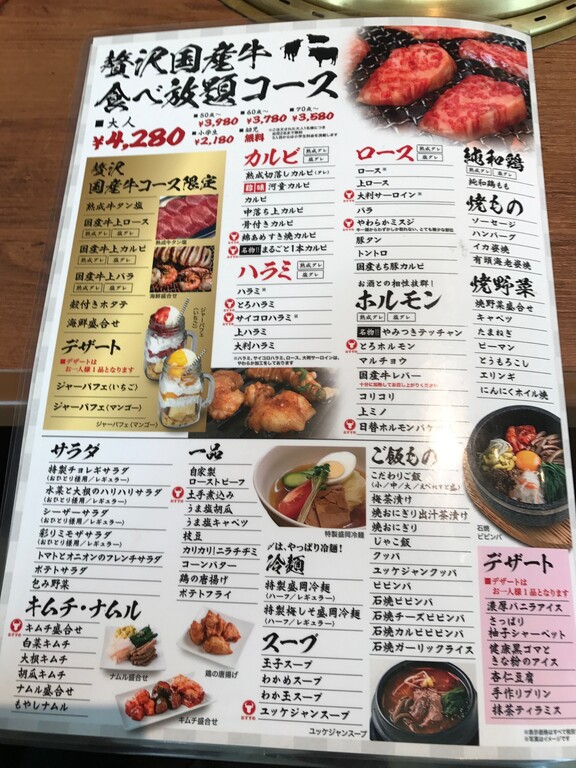 贅沢国産牛
食べ放題コース
■大人
¥4,280
■50歳〜
¥3,980
■60歳〜
¥3,780
■70歳〜
¥3,580
■小学生
¥2,180
■幼児
無料
贅沢
国産牛コース限定
熟成牛タン塩
国産牛上ロース
熟成ダレ 塩ダレ
国産牛上カルビ
熟成ダレ 塩ダレ
国産牛上バラ
熟成ダレ 塩ダレ
殻付きホタテ
海鮮盛合せ
熟成牛タン塩
海鮮盛合せ
デザート
■デザートは
お一人様1品となります
ジャーパフェ(いちご)
ジャーパフェ(マンゴー)
ジャーパフェ
(いちご)
ジャーパフェ(マンゴー)
カルビ
熟成ダレ 塩ダレ
熟成切落しカルビ(ダレ)
壺味 河童カルビ
カルビ
中落ち上カルビ
骨付きカルビ
綿あめすき焼カルビ
名物!! まるごと1本カルビ
ハラミ
熟成ダレ 塩ダレ
ハラミ※
とろハラミ
サイコロハラミ※
上ハラミ
大判ハラミ
※ハラミ、サイコロハラミ、ロース、大判サーロインは、
やわらか加工をしております
ロース
熟成ダレ 塩ダレ
ロース※
上ロース
大判サーロイン※
バラ
やわらかミスジ
豚タン
トントロ
国産もち豚カルビ
お酒との相性抜群!
ホルモン
熟成ダレ 塩ダレ
名物!! やみつきテッチャン
とろホルモン
マルチョウ
国産牛レバー
十分に加熱してお召し上がりください
コリコリ
上ミノ
日替ホルモンバケ
純和鶏
熟成ダレ 塩ダレ
純和鶏もも
焼もの
ソーセージ
ハンバーグ
イカ姿焼
有頭海老姿焼
焼野菜
焼野菜盛合せ
キャベツ
たまねぎ
ピーマン
とうもろこし
エリンギ
にんにくホイル焼
石焼
ビビンバ
サラダ
特製チョレギサラダ
(おひとり様用/レギュラー)
水菜と大根のハリハリサラダ
(おひとり様用/レギュラー)
シーザーサラダ
(おひとり様用/レギュラー)
彩りミモザサラダ
(おひとり様用/レギュラー)
トマトとオニオンのフレンチサラダ
ポテトサラダ
包み野菜
キムチ・ナムル
キムチ盛合せ
白菜キムチ
大根キムチ
胡瓜キムチ
ナムル盛合せ
もやしナムル
ナムル盛合せ
キムチ盛合せ
一品
自家製
ローストビーフ
土手煮込み
うま塩胡瓜
うま塩キャベツ
枝豆
カリカリ!ニラチヂミ
コーンバター
鶏の唐揚げ
ポテトフライ
鶏の唐揚げ
特製盛岡冷麺
〆は、やっぱり冷麺!
冷麺
特製盛岡冷麺
(ハーフ/レギュラー)
特製梅しそ盛岡冷麺
(ハーフ/レギュラー)
スープ
玉子スープ
わかめスープ
わか玉スープ
ユッケジャンスープ
ユッケジャンスープ
ご飯もの
こだわりご飯
梅茶漬け
焼おにぎり出汁茶漬け
焼おにぎり
じゃこ飯
クッパ
ユッケジャンクッパ
ビビンバ
石焼ビビンバ
石焼チーズビビンバ
石焼カルビビビンバ
石焼ガーリックライス
デザート
■デザートは
お一人様1品となります
濃厚バニラアイス
さっぱり
柚子シャーベット
健康黒ゴマと
きな粉のアイス
杏仁豆腐
手作りプリン
抹茶ティラミス
※写真はイメージです